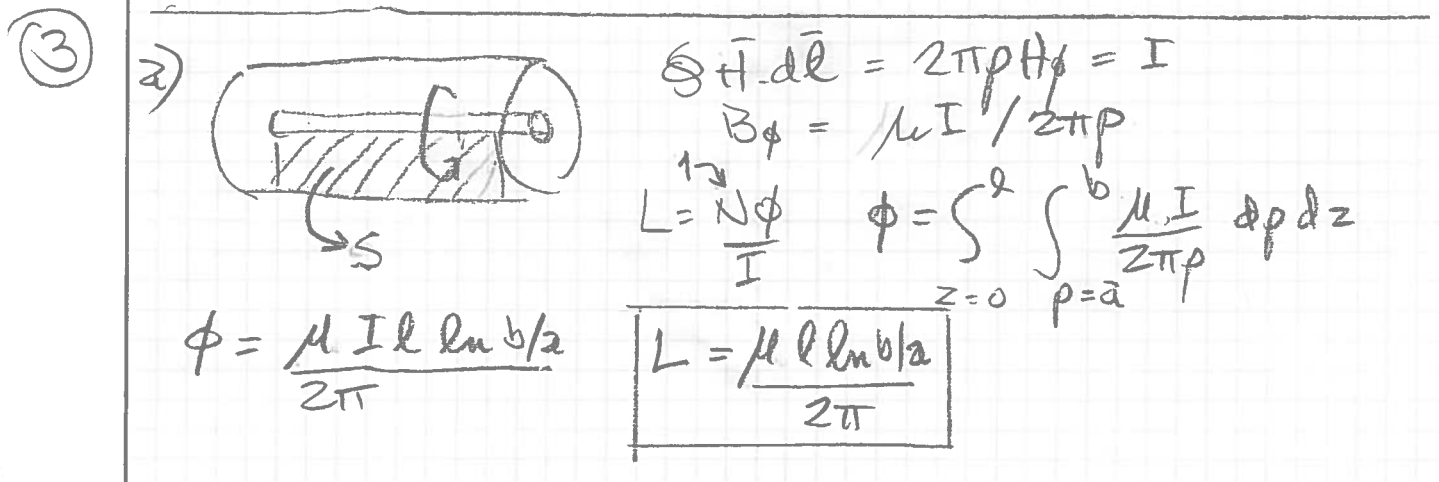 ③ a) ∮ H̄·dl̄ = 2πρHϕ = I
Bϕ = μI / 2πρ
S
1
L = Nϕ / I ϕ = ∫_{z=0}^{l} ∫_{ρ=a}^{b} μI / 2πρ dρ dz
ϕ = μ I l ln b/a / 2π L = μ l ln b/a / 2π